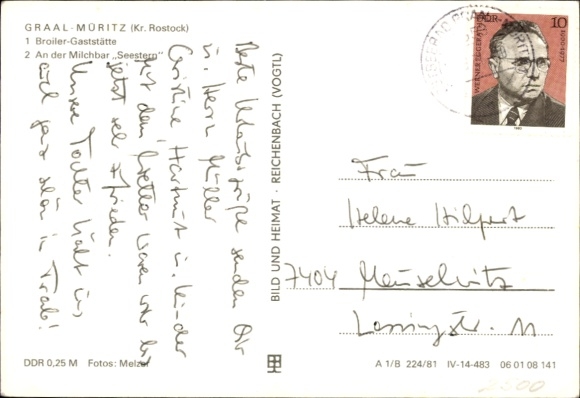 GRAAL-MÜRITZ (Kr. Rostock)
1 Broiler-Gaststätte
2 An der Milchbar „Seestern"
Beste Urlaubsgrüße senden Dir
u. Herrn Müller
Christine Hartmut u. Kinder
Mit dem Wetter waren wir bis
jetzt sehr zufrieden.
Unsere Tochter hält uns
auch ganz schön in Trab!
BILD UND HEIMAT · REICHENBACH (VOGTL)
DDR 10
WERNER EGGERATH
1900-1977
1980
OSTSEEBAD GRAAL-MÜRITZ
Frau
Helene Hilpert
7404 Meuselwitz
Lessingstr. 11
DDR 0,25 M Fotos: Melzer
A 1/B 224/81 IV-14-483 06 01 08 141